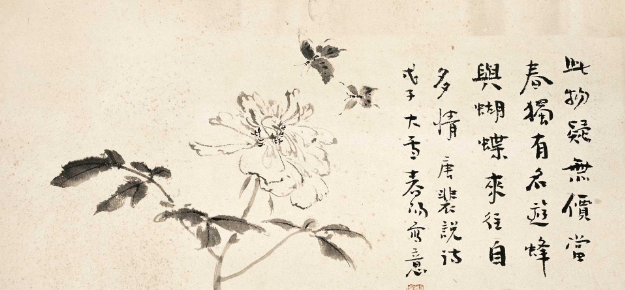 此物疑無價當
春獨有名遊蜂
與蝴蝶來往自
多情 唐裴説詩
戊子大雪春寫意